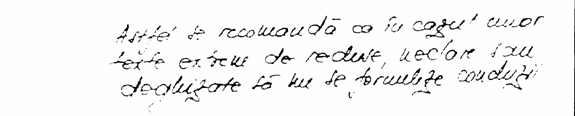 Astfel se recomandă ca în cazul unor
texte extrem de reduse, neclare sau
deghizate să nu se formuleze concluzii